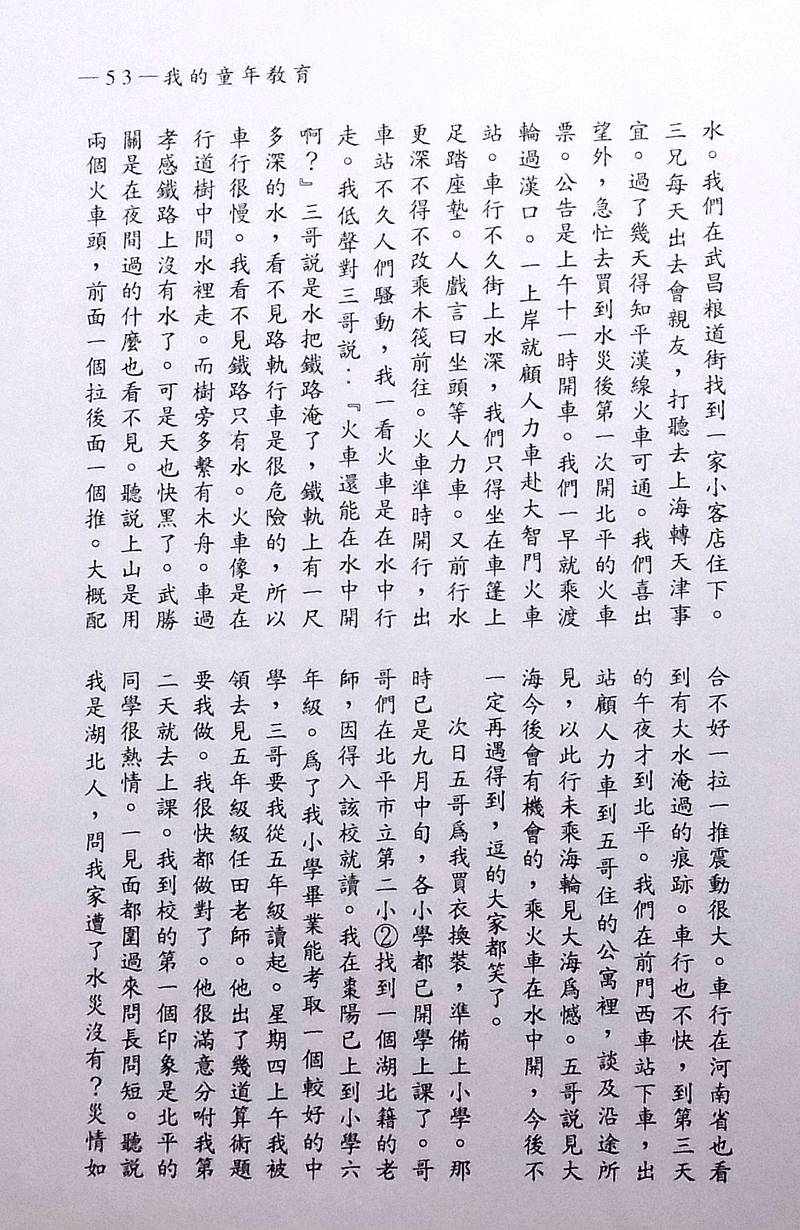 —53—我的童年教育
水。我們在武昌粮道街找到一家小客店住下。
三兄每天出去會親友，打聽去上海轉天津事
宜。過了幾天得知平漢線火車可通。我們喜出
望外，急忙去買到水災後第一次開北平的火車
票。公告是上午十一時開車。我們一早就乘渡
輪過漢口。一上岸就顧人力車赴大智門火車
站。車行不久街上水深，我們只得坐在車篷上
足踏座墊。人戲言曰坐頭等人力車。又前行水
更深不得不改乘木筏前往。火車準時開行，出
車站不久人們騷動，我一看火車是在水中行
走。我低聲對三哥説：『火車還能在水中開
啊？』三哥説是水把鐵路淹了，鐵軌上有一尺
多深的水，看不見路軌行車是很危險的，所以
車行很慢。我看不見鐵路只有水。火車像是在
行道樹中間水裡走。而樹旁多繫有木舟。車過
孝感鐵路上沒有水了。可是天也快黑了。武勝
關是在夜間過的什麼也看不見。聽説上山是用
兩個火車頭，前面一個拉後面一個推。大概配
合不好一拉一推震動很大。車行在河南省也看
到有大水淹過的痕跡。車行也不快，到第三天
的午夜才到北平。我們在前門西車站下車，出
站顧人力車到五哥住的公寓裡，談及沿途所
見，以此行未乘海輪見大海爲憾。五哥説見大
海今後會有機會的，乘火車在水中開，今後不
一定再遇得到，逗的大家都笑了。
次日五哥爲我買衣換裝，準備上小學。那
時已是九月中旬，各小學都已開學上課了。哥
哥們在北平市立第二小②找到一個湖北籍的老
師，因得入該校就讀。我在棗陽已上到小學六
年級。爲了我小學畢業能考取一個較好的中
學，三哥要我從五年級讀起。星期四上午我被
領去見五年級級任田老師。他出了幾道算術題
要我做。我很快都做對了。他很滿意分咐我第
二天就去上課。我到校的第一個印象是北平的
同學很熱情。一見面都圍過來問長問短。聽説
我是湖北人，問我家遭了水災沒有？災情如